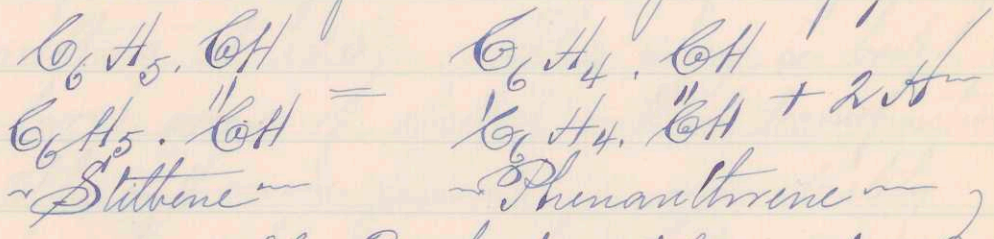 C6H5.CH C6H4.CH
" = ' " + 2H
C6H5.CH C6H4.CH
~Stilbene~ ~Phenanthrene~